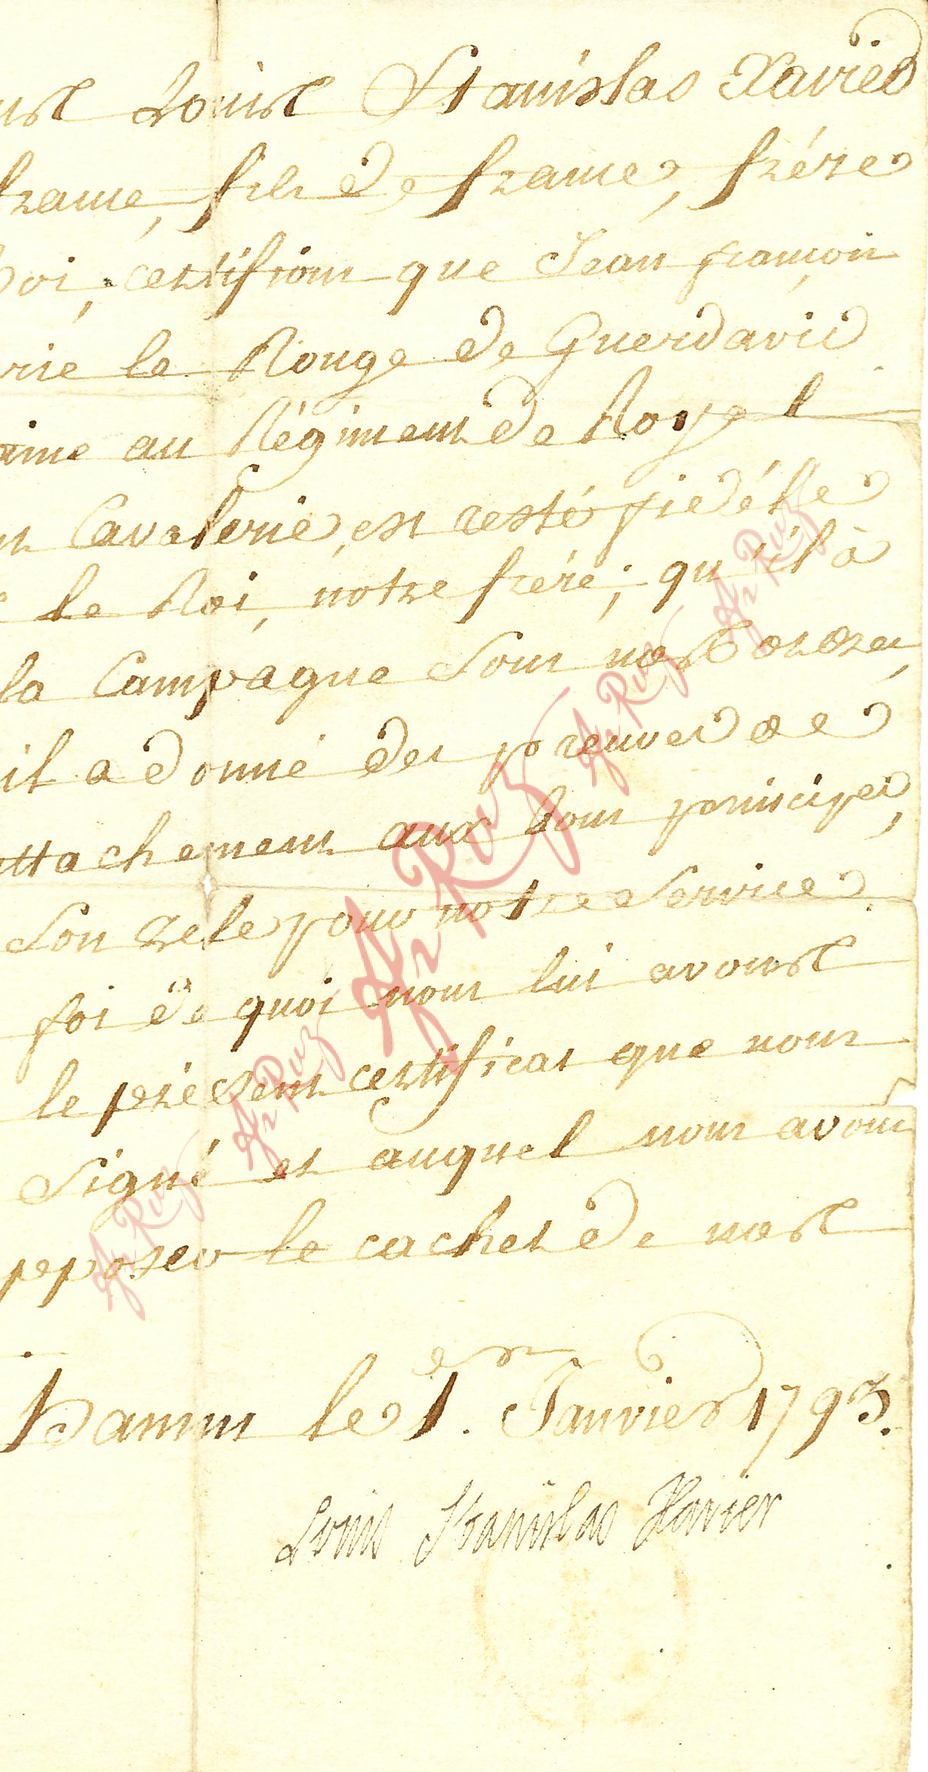 Louis Stanislas Xavier
france, fils de france, frére
Roi, certifions que Jean françois
rie le Rouge de Guerdavid
aine au Régiment de Royal
Cavalerie, est resté fidélle
le Roi, notre frére; qu'il à
la Campagne Sous nos ordres,
il a donné des preuves de
attachement aux bons principes,
Son zele pour notre Service,
foi de quoi nous lui avons
le présent certificat que nous
Signé et auquel nous avons
pposer le cachet de nos
hamm le 1.er Janvier 1793.
Louis Stanislas Xavier
Az Ruz
Az Ruz
Az Ruz
Az Ruz
Az Ruz